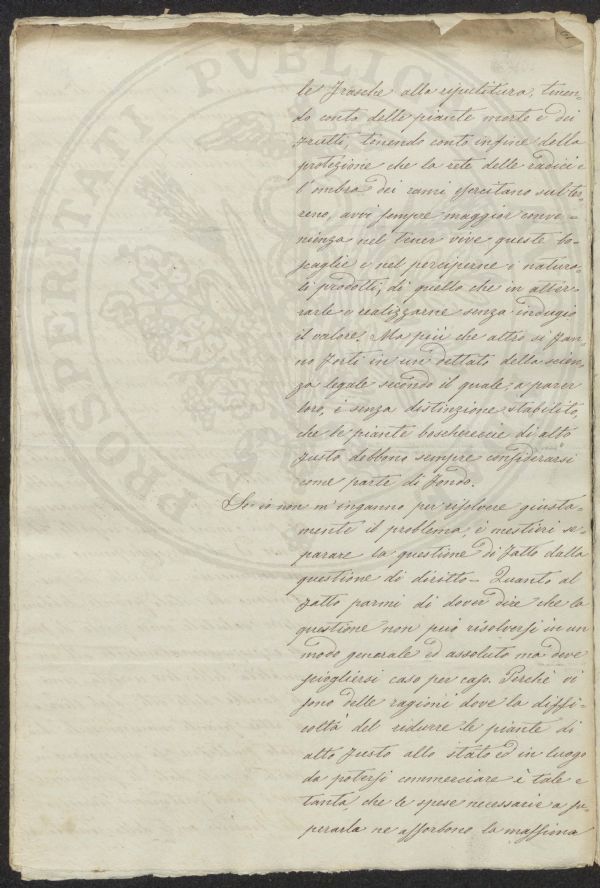 PROSPERITATI PUBLICAE
le frasche alla ripulitura, tenen-
do conto delle piante morte e dei
frutti, tenendo conto infine della
protezione che la rete delle radici e
l'ombra dei rami esercitano sul ter-
reno, avvi sempre maggior conve-
nienza nel tener vive queste bo-
scaglie e nel percipirne i natura-
li prodotti, di quello che in atter-
rarle e realizzarne senza indugio
il valore. Ma più che altro si fan-
no forti in un dettato della scien-
za legale secondo il quale, a parer
loro, è senza distinzione stabilito,
che le piante boschereccie di alto
fusto debbono sempre considerarsi
come parte di fondo.
Se io non m'inganno per risolvere giusta-
mente il problema, è mestieri se-
parare la questione di fatto dalla
questione di diritto - Quanto al
fatto parmi di dover dire che la
questione non può risolversi in un
modo generale ed assoluto ma deve
sciogliersi caso per caso. Perchè vi
sono delle ragioni dove la diffi-
coltà del ridurre le piante di
alto fusto allo stato ed in luogo
da potersi commerciare è tale e
tanta, che le spese necessarie a su-
perarla ne assorbono la massima